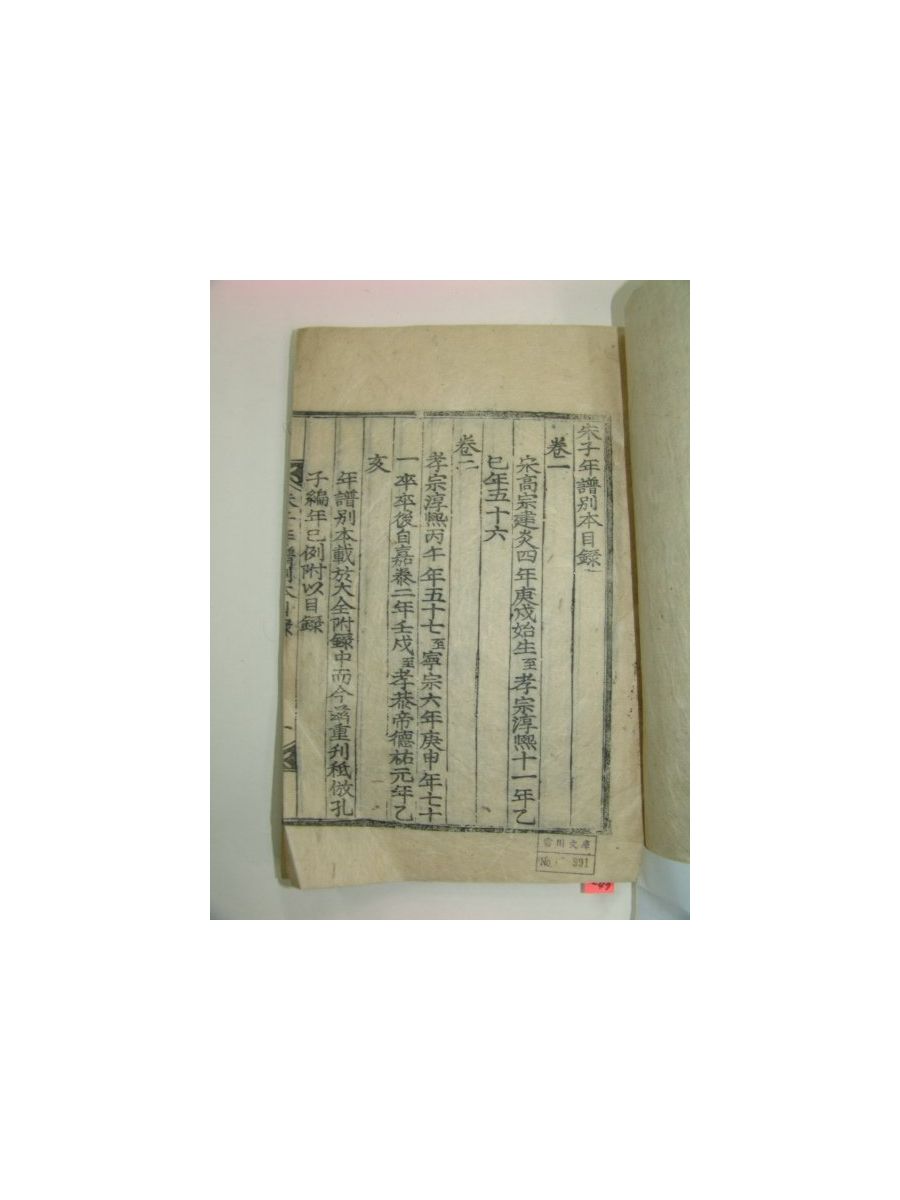 朱子年譜別本目錄
卷一
宋高宗建炎四年庚戌始生至孝宗淳熙十一年乙
巳年五十六
卷二
孝宗淳熙丙午年五十七至寧宗六年庚申年七十
一卒卒後自嘉泰二年壬戌至孝恭帝德祐元年乙
亥
年譜別本載於大全附錄中而今爲重刊秪倣孔
子編年已例附以目錄
朱子年譜別本目錄
一
文庫
No. 991